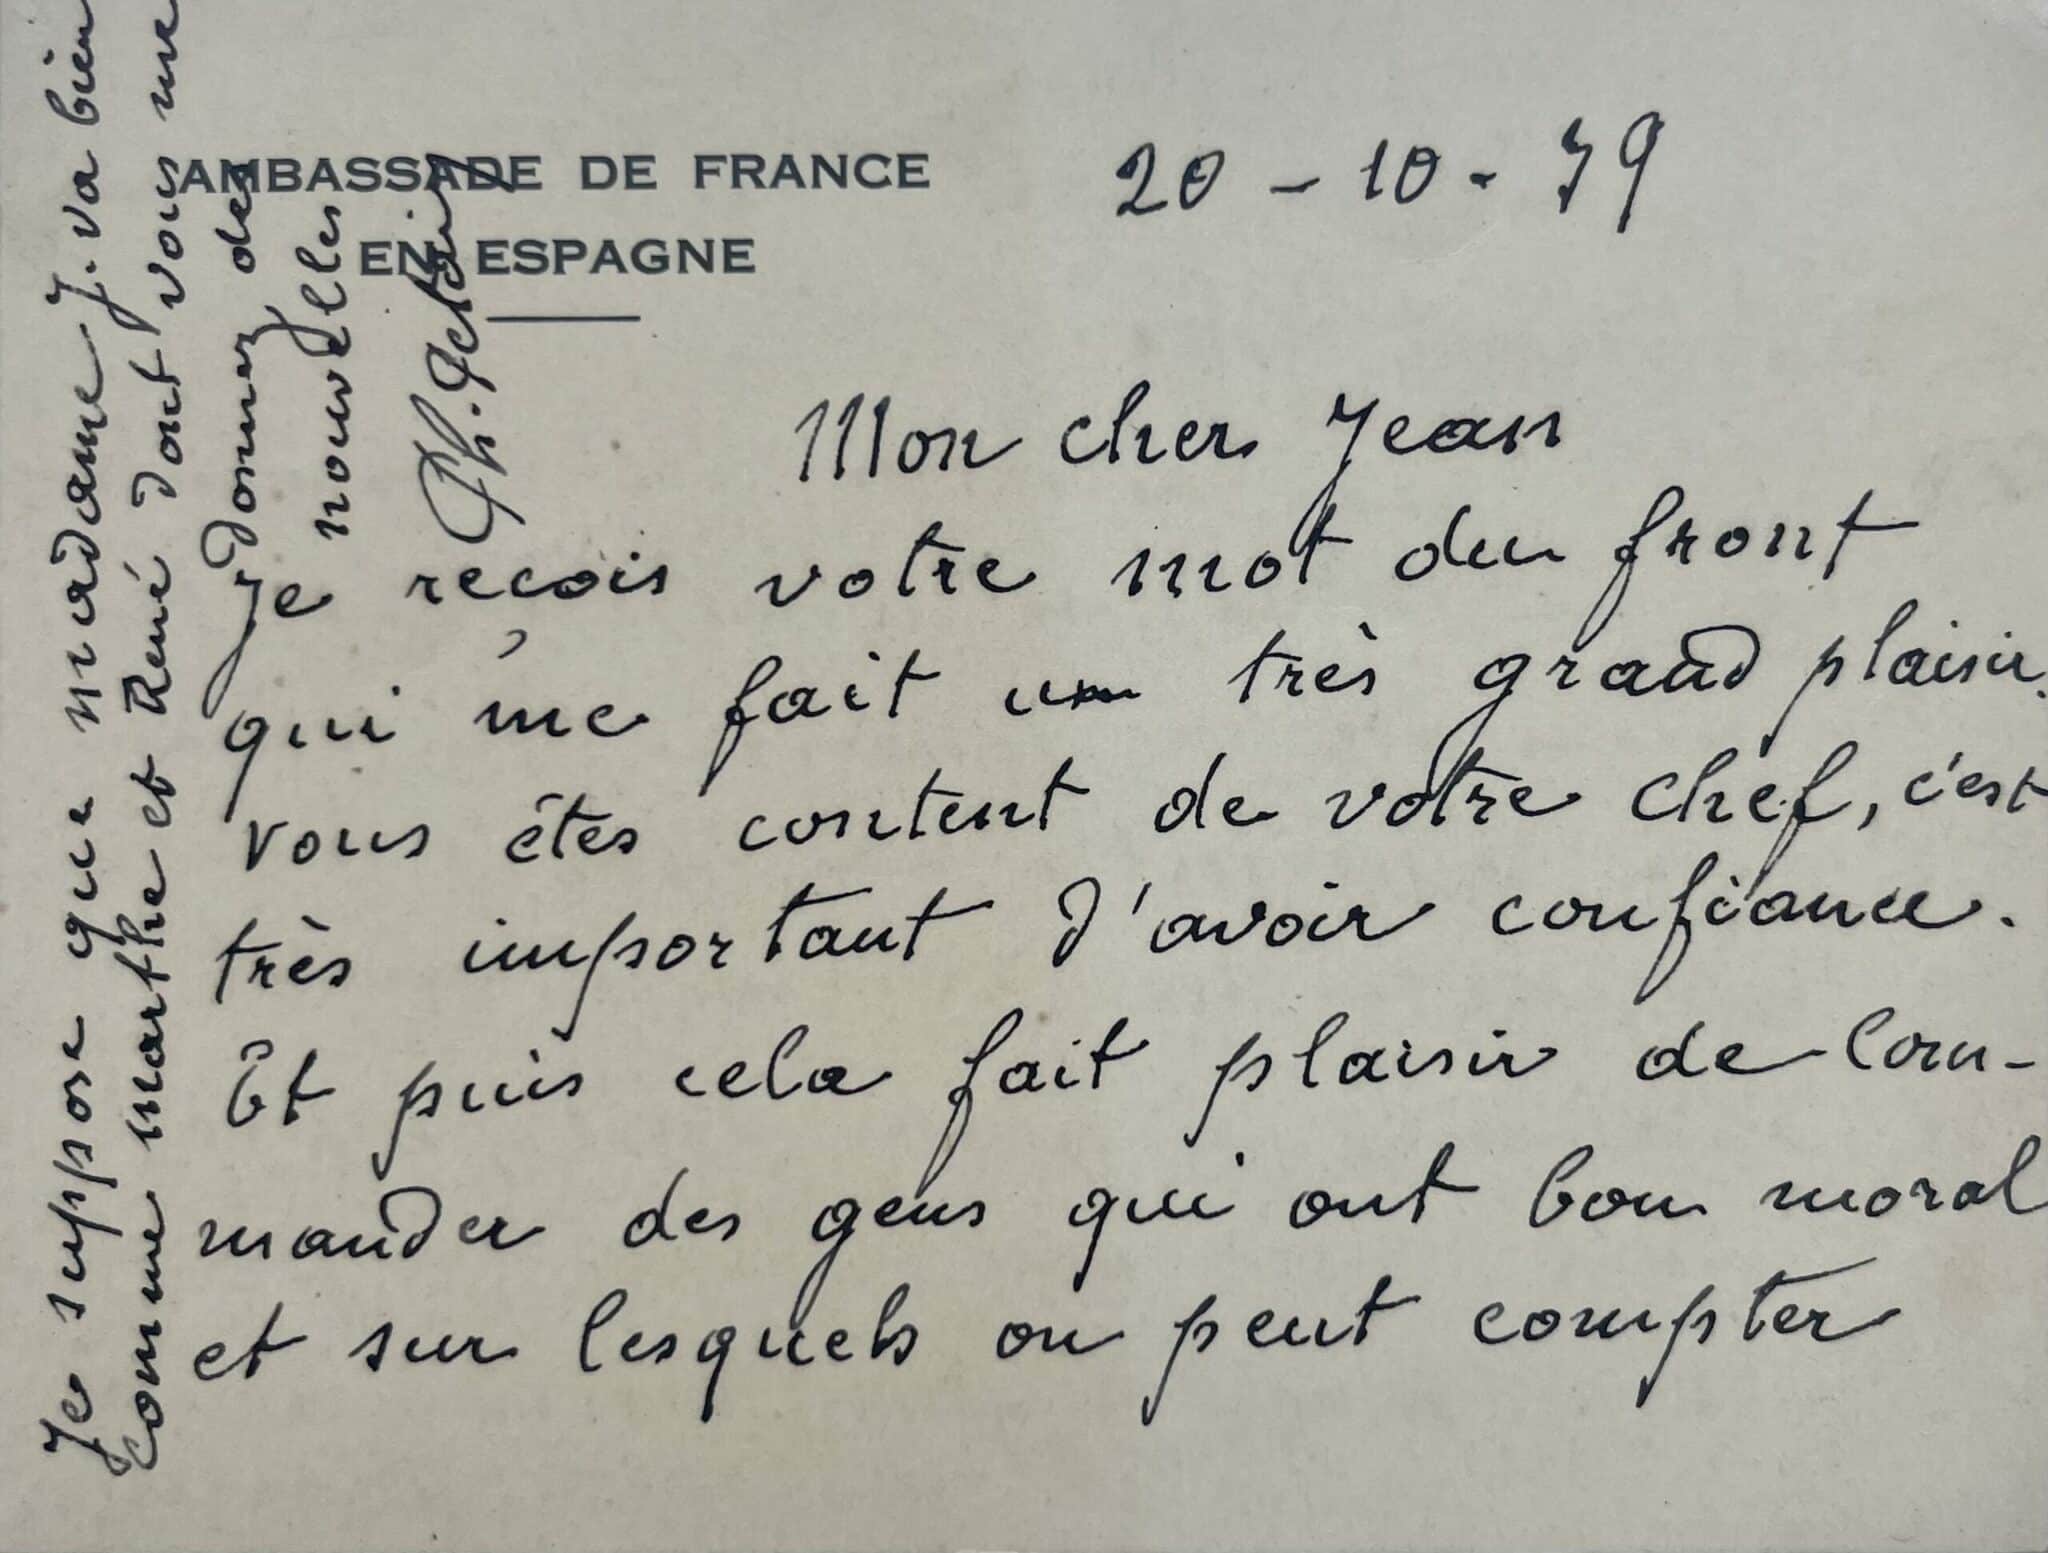 AMBASSADE DE FRANCE
EN ESPAGNE
20 - 10 - 39
Mon cher Jean
Je reçois votre mot du front
qui me fait un très grand plaisir.
vous êtes content de votre chef, c'est
très important d'avoir confiance.
Et puis cela fait plaisir de com-
mander des gens qui ont bon moral
et sur lesquels on peut compter
Je suppose que madame J. va bien
comme marthe et René dont vous me
donnez des
nouvelles
Ph. Pétain